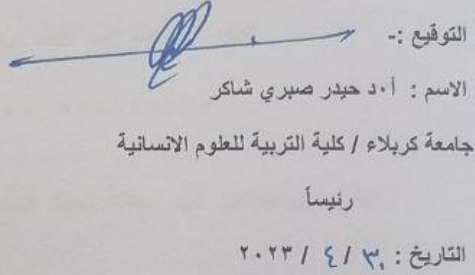 التوقيع :-
الاسم : أ.د حيدر صبري شاكر
جامعة كربلاء / كلية التربية للعلوم الانسانية
رئيساً
التاريخ : ٣٠ / ٤ / ٢٠٢٣